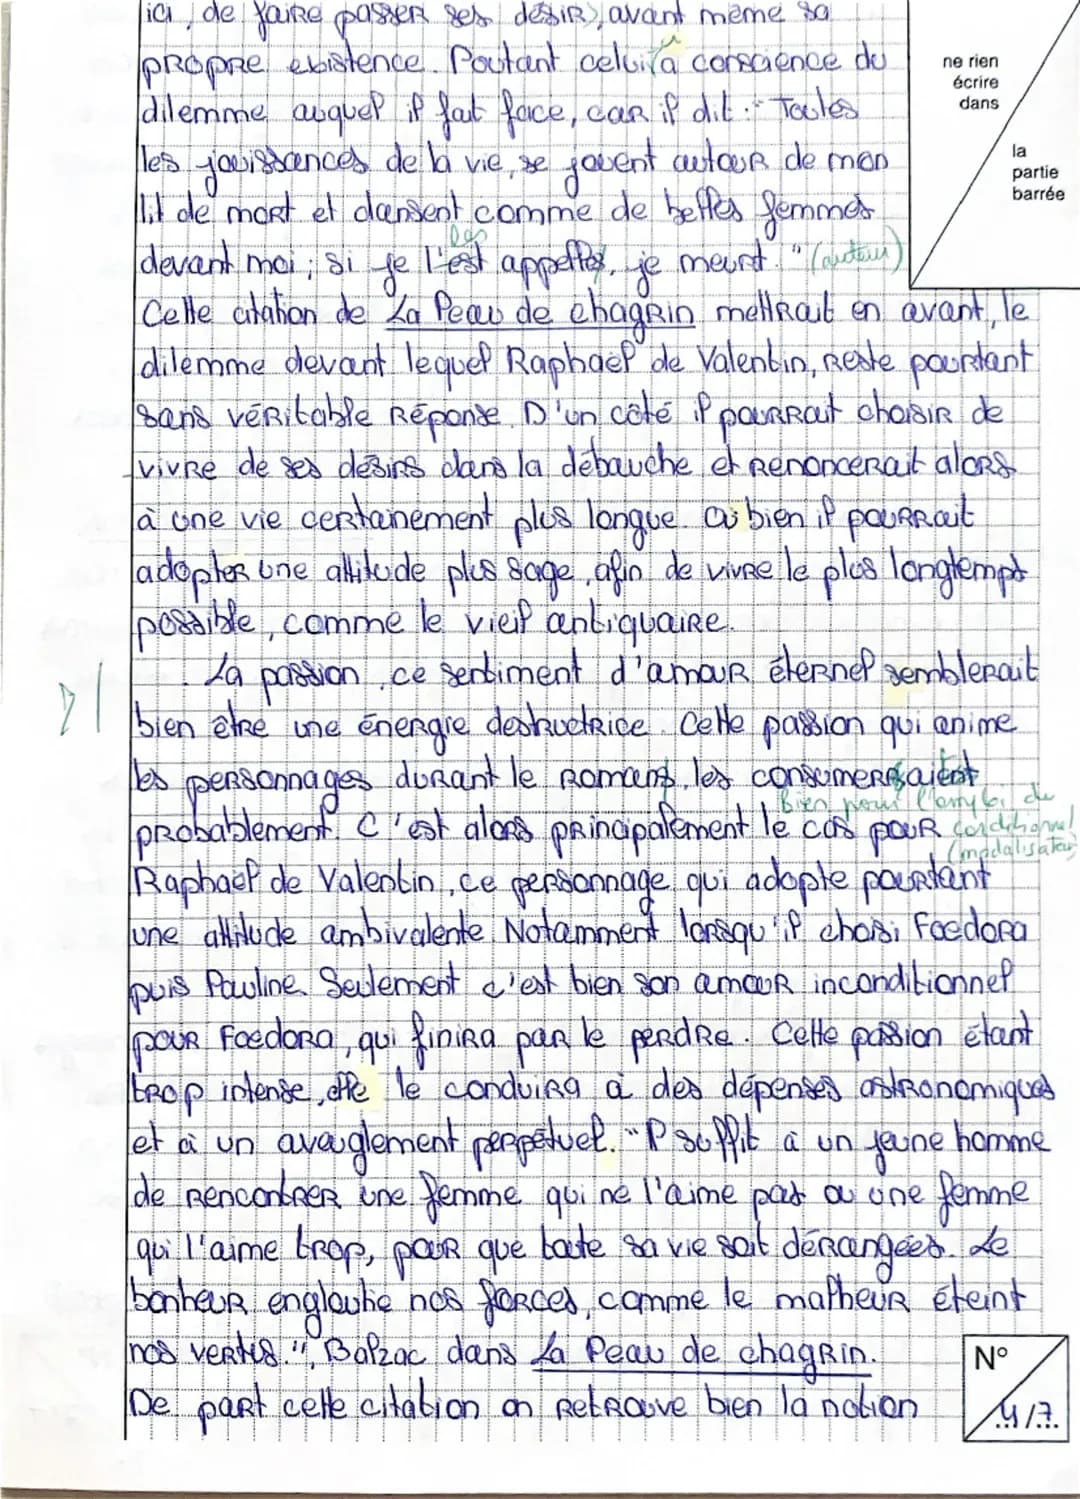 ici, de faire passer ses désirs, avant même sa
propre existence. Poutant celui a conscience du
dilemme auquel il fait face, car il dit : "Toutes
les jouissances de la vie, se jouent autour de mon
lit de mort et dansent comme de belles femmes
devant moi ; si je l'est appelles, je meurt." (auteur)
les
Cette citation de La Peau de chagrin mettrait en avant, le
dilemme devant lequel Raphaël de Valentin, reste pourtant
sans véritable réponse. D'un côté il pourrait choisir de
vivre de ses désirs dans la débauche et renoncerait alors
à une vie certainement plus longue. Ou bien il pourrait
adopter une attitude plus sage, afin de vivre le plus longtempt
possible, comme le vieil antiquaire.
La passion, ce sentiment d'amour éternel semblerait
bien être une énergie destructrice. Cette passion qui anime
les personnages durant le roman, les consumeraient
Bien pour l'emploi du
probablement. C'est alors principalement le cas pour
conditionnel
(modalisateur)
Raphaël de Valentin, ce personnage qui adopte pourtant
une attitude ambivalente. Notamment lorsqu'il choisi Foedora
puis Pauline. Seulement c'est bien son amour inconditionnel
pour Foedora, qui finira par le perdre. Cette passion étant
trop intense, elle le conduira à des dépenses astronomiques
et à un aveuglement perpétuel. "Il suffit à un jeune homme
de rencontrer une femme qui ne l'aime pas ou une femme
qui l'aime trop, pour que toute sa vie soit dérangées. Le
bonheur engloutie nos forces, comme le malheur éteint
nos vertus.", Balzac dans La Peau de chagrin.
De part cette citation on retrouve bien la notion
ne rien
écrire
dans
la
partie
barrée
N°
4/7